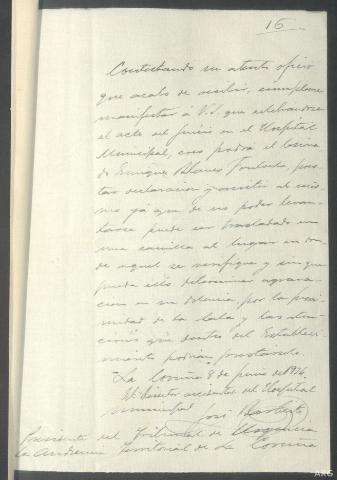 16
Contestando su atento oficio
que acabo de recibir, cumpleme
manifestar á V.S. que celebrandose
el acto del juicio en el Hospital
Municipal, creo podrá el
de Enrique Blanco pres
tar declaracion y asistir al mis
mo ya que de no poder levan
tarse puede ser trasladado en
una camilla al lugar en don
de aquel se verifique y sin que
pueda ello determinar agrava
cion en su dolencia, por la proxi
midad de la Sala y las aten
ciones que dentro del Estableci
miento podrian prestársele.
La Coruña 8 de Junio de 1936.
El Director accidental del Hospital
Municipal
José
Presidente del Tribunal de Urgencia
la Audiencia Territorial de La Coruña
AXG